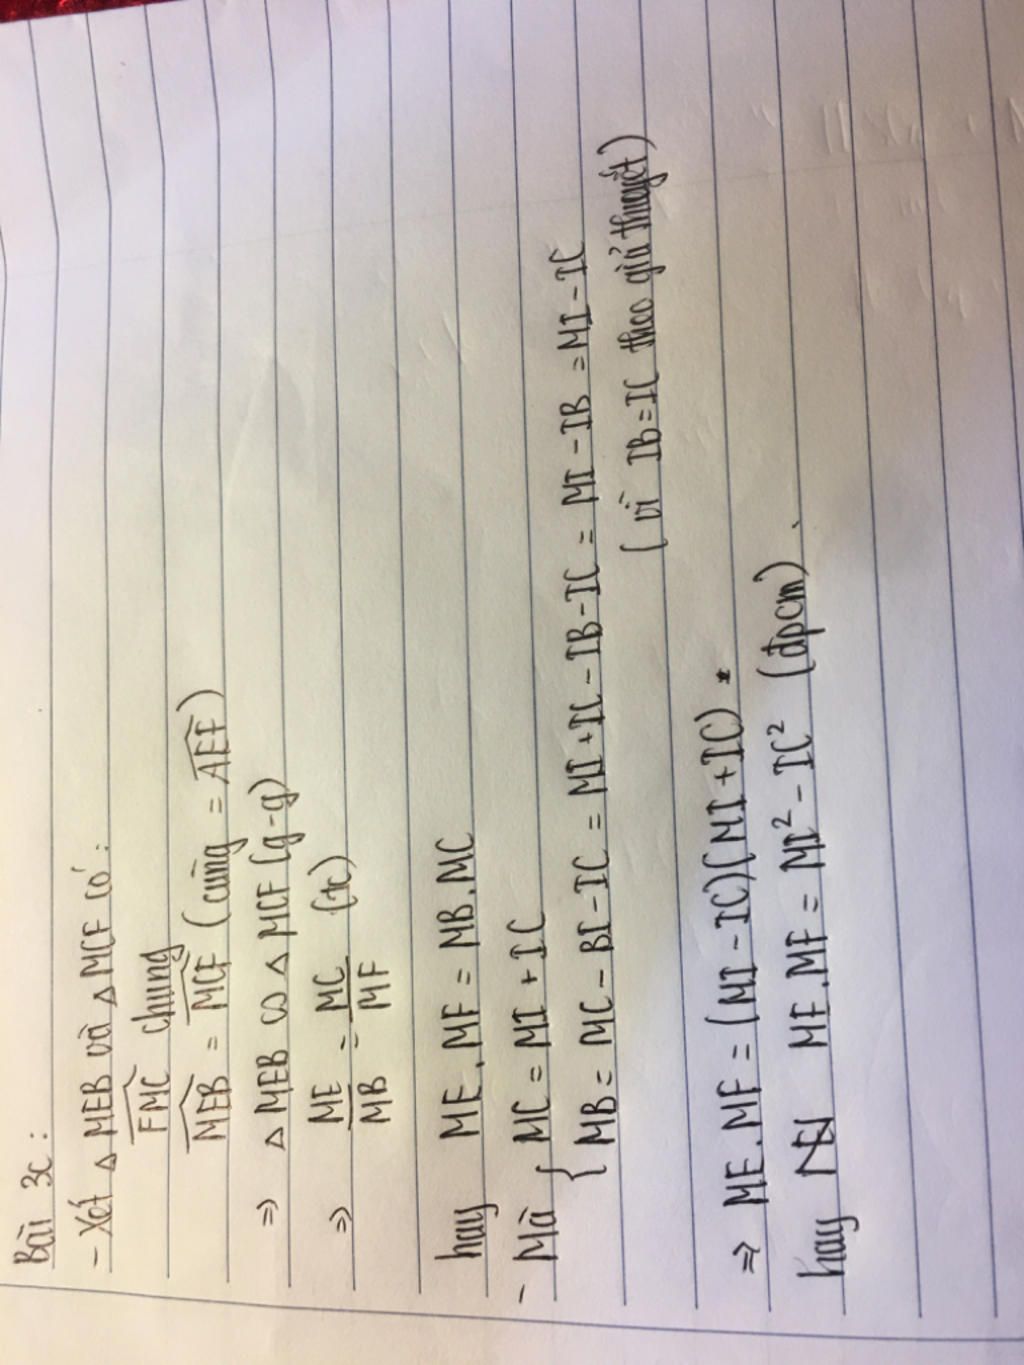 Bài 3c:
- Xét △ MEB và △ MCF có:
$\widehat{FMC}$ chung
$\widehat{MEB}$ = $\widehat{MCF}$ (cùng = $\widehat{AEF}$)
⇒ △ MEB ∽ △ MCF (g-g)
⇒ $\frac{ME}{MB}$ = $\frac{MC}{MF}$ (tc)
hay ME.MF = MB.MC
- Mà { MC = MI + IC
MB = MC - BI - IC = MI + IC - IB - IC = MI - IB = MI - IC
(vì IB = IC theo giả thuyết)
⇒ ME.MF = (MI - IC)(MI + IC).
hay ME.MF = MI² - IC² (đpcm).